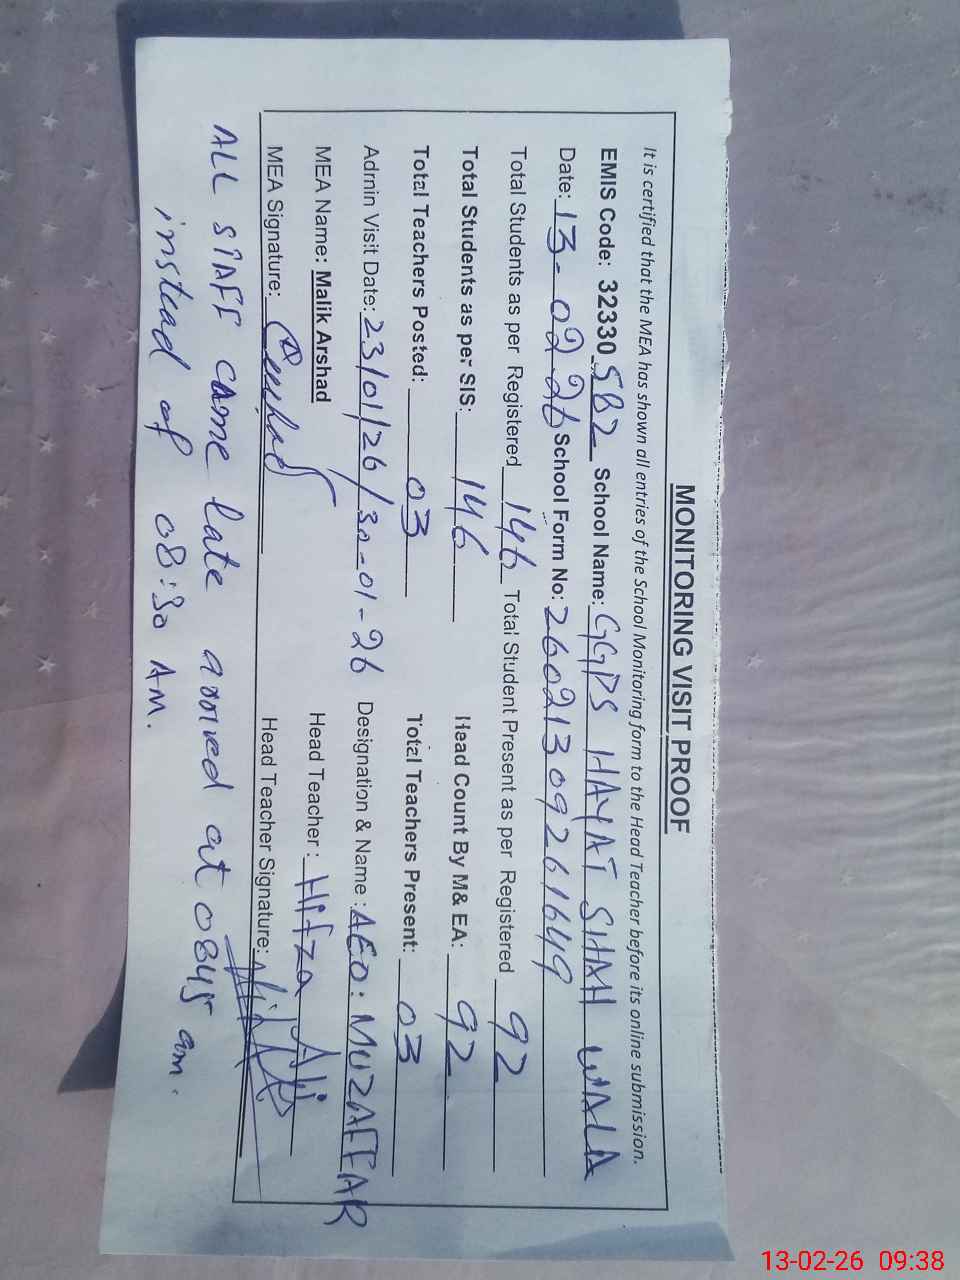 MONITORING VISIT PROOF
It is certified that the MEA has shown all entries of the School Monitoring form to the Head Teacher before its online submission.
EMIS Code: 32330 582 School Name: GGPS HAYAT SHAH WALA
Date: 13-02-26 School Form No: 26021309261649
Total Students as per Registered 146 Total Student Present as per Registered 92
Total Students as per SIS: 146 Head Count By M& EA: 92
Total Teachers Posted: 03 Total Teachers Present: 03
Admin Visit Date: 23/01/26/30-01-26 Designation & Name: AEO: MUZAFFAR
MEA Name: Malik Arshad Head Teacher: Hifza Ali
MEA Signature: Head Teacher Signature:
ALL STAFF CAME late arrived at 0845 am.
instead of 08:30 AM.
13-02-26 09:38